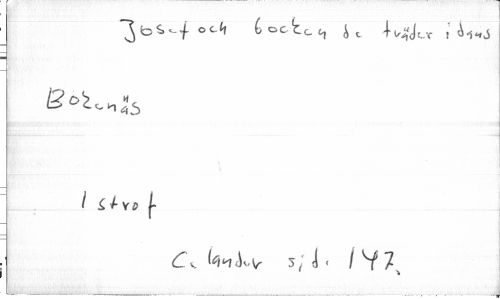 Josef och bocken de träder i dans
Bokenäs
1 strof
Celander sid. 147.